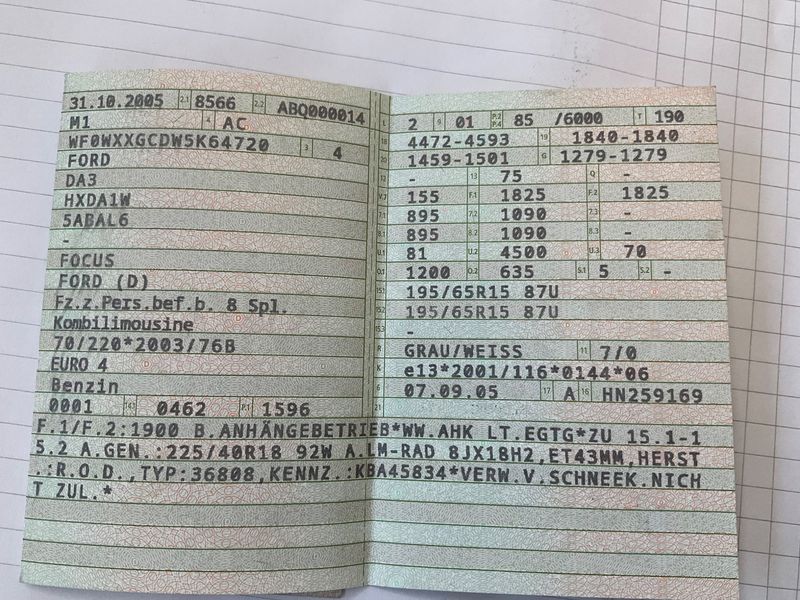 31.10.2005 2.1 8566 2.2 ABQ000014
M1 4 AC
WF0WXXGCDW5K64720 3 4
FORD
DA3
HXDA1W
5ABAL6
-
FOCUS
FORD (D)
Fz.z.Pers.bef.b. 8 Spl.
Kombilimousine
70/220*2003/76B
EURO 4
Benzin
0001 14.1 0462 P.1 1596
L 2 9 01 P.2 P.4 85 /6000 T 190
18 4472-4593 19 1840-1840
20 1459-1501 G 1279-1279
12 - 13 75 Q -
V.7 155 F.1 1825 F.2 1825
7.1 895 7.2 1090 7.3 -
8.1 895 8.2 1090 8.3 -
U.1 81 U.2 4500 U.3 70
O.1 1200 O.2 635 S.1 5 S.2 -
15.1 195/65R15 87U
195/65R15 87U
15.3 -
R GRAU/WEISS 11 7/0
K e13*2001/116*0144*06
6 07.09.05 17 A 16 HN259169
21
F.1/F.2:1900 B.ANHÄNGEBETRIEB*WW.AHK LT.EGTG*ZU 15.1-1
5.2 A.GEN.:225/40R18 92W A.LM-RAD 8JX18H2,ET43MM,HERST
.:R.O.D.,TYP:36808,KENNZ.:KBA45834*VERW.V.SCHNEEK.NICH
T ZUL.*